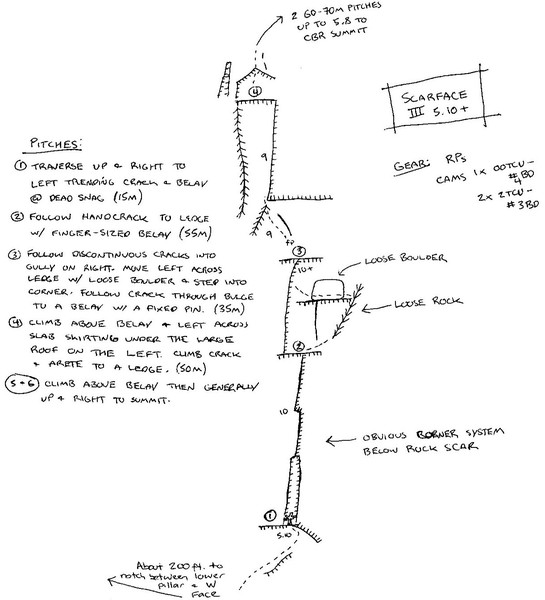 2 60-70m PITCHES
UP TO 5.8 TO
CBR SUMMIT
SCARFACE
III 5.10+
GEAR: RPs
CAMS 1x 00TCU-
#4BD
2x 2TCU-
#3BD
PITCHES:
① TRAVERSE UP & RIGHT TO
LEFT TRENDING CRACK & BELAY
@ DEAD SNAG (15M)
② FOLLOW HANDCRACK TO LEDGE
W/ FINGER-SIZED BELAY (55M)
③ FOLLOW DISCONTINUOUS CRACKS INTO
GULLY ON RIGHT. MOVE LEFT ACROSS
LEDGE W/ LOOSE BOULDER & STEP INTO
CORNER. FOLLOW CRACK THROUGH BULGE
TO A BELAY W/ A FIXED PIN. (35M)
④ CLIMB ABOVE BELAY & LEFT ACROSS
SLAB SKIRTING UNDER THE LARGE
ROOF ON THE LEFT. CLIMB CRACK
& ARETE TO A LEDGE. (50M)
5+6 CLIMB ABOVE BELAY THEN GENERALLY
UP & RIGHT TO SUMMIT.
④
9
9
fp
③
10+
LOOSE BOULDER
LOOSE ROCK
②
10
OBVIOUS CORNER SYSTEM
BELOW ROCK SCAR
①
5.10
About 200ft. to
notch between lower
pillar & W
Face